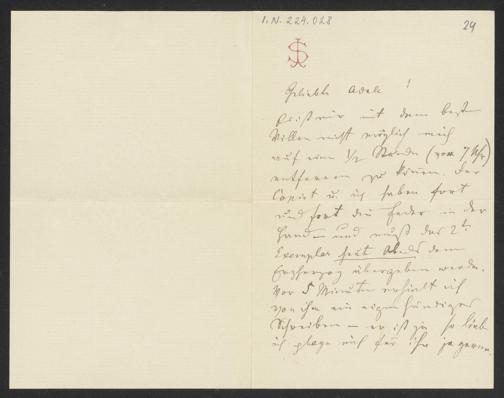 I.N. 224.028
24
JS
Geliebte Adele!
Es ist mir mit dem besten
Willen nicht möglich mich
auf eine ½ Stunde (vor 7 Uhr)
entfernen zu können. Der
Copist u. ich haben fort
und fort die Feder in der
Hand – und muß das 2te
Exemplar heut Abends dem
Erzherzog übergeben werden.
Vor 5 Minuten erhielt ich
von ihm ein eigenhändiges
Schreiben – er ist ja so lieb
ich plage mich für ihn ja gerne